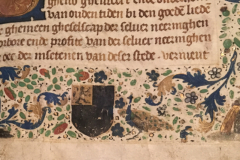 van ouden tiden bi den goede liede
ghemeen gheselscap der selver neeringhen
orbore ende profite van der selver neeringhen
ec der insetenen van deser stede vermeert